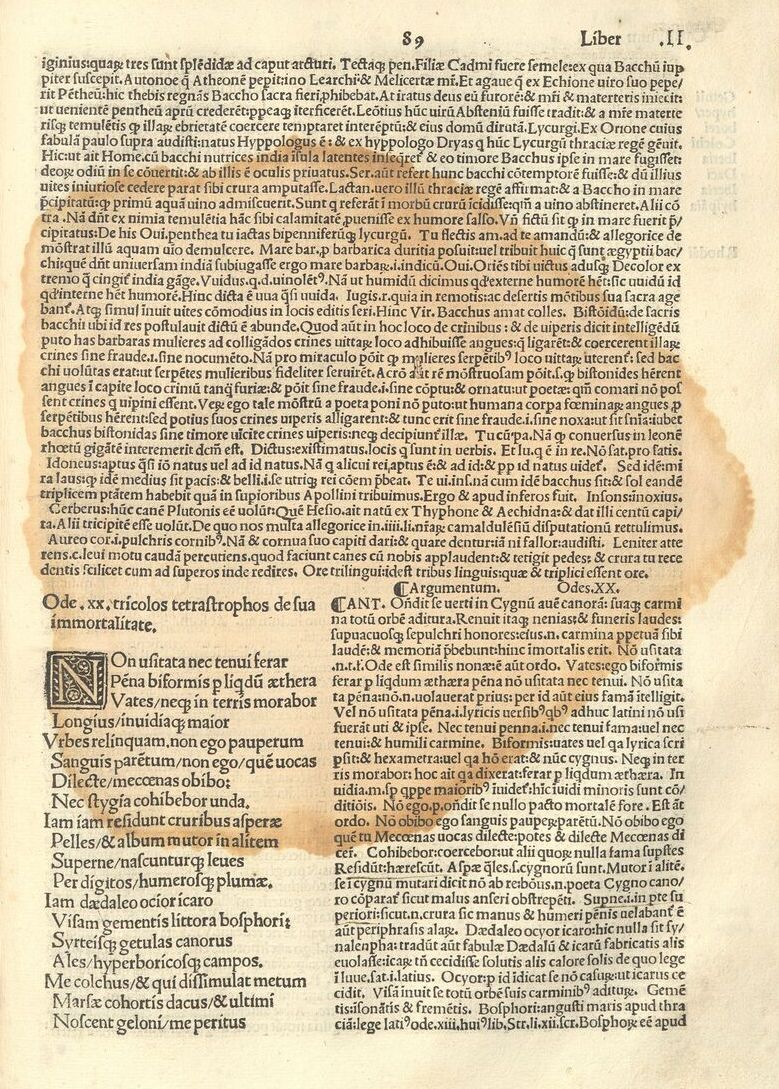 89 Liber .II.
iginius:quaꝝ tres sunt splẽdidæ ad caput arcturi. Tectaqꝫ pen.Filiæ Cadmi fuere semele:ex qua Bacchũ iup
piter suscepit. Autonoe q̃ Atheonẽ pepit:ino Learchi & Melicertæ mr̃. Et agaue q̃ ex Echione uiro suo pepe/
rit Pẽtheũ:hic thebis regnãs Baccho sacra fieri,phibebat. At iratus deus eũ furorẽ:& mr̃i & materteris iniecit:
ut uenientẽ pentheũ aprũ crederẽt:ppeaqꝫ iterficerẽt. Leõtius hũc uirũ Absteniũ fuisse tradit:& a mr̃e materte
risqꝫ temulẽtis ꝙ illaꝝ ebrietatẽ coercere temptaret interẽptũ:& eius domũ dirutã. Lycurgi. Ex Orione cuius
fabulã paulo supra audisti:natus Hyppologus ẽ:& ex hyppologo Dryas q̃ hũc Lycurgũ thraciæ regẽ genuit.
Hic:ut ait Home.cũ bacchi nutrices india iſula latentes inseq̃ret & eo timore Bacchus ipse in mare fugisset:
deoꝝ odiũ in se cõuertit:& ab illis ẽ oculis priuatus. Ser.aũt refert hunc bacchi cõtemptorẽ fuisse:& dũ illius
uites iniuriose cedere parat sibi crura amputasse. Lactan.uero illũ thraciæ regẽ affirmat:& a Baccho in mare
p̃cipitatũ:ꝙ primũ aquã uino admiscuerit. Sunt q̃ referãt ĩ morbũ crurũ ĩcidisse:qm̃ a uino abstineret. Alii cõ
tra .Nã dñt ex nimia temulẽtia hãc sibi calamitatẽ,puenisse ex humore salso. Vñ fictũ sit ꝙ in mare fuerit p̃/
cipitatus:De his Oui.penthea tu iactas bipenniferũqꝫ lycurgũ. Tu flectis am.ad te amandũ:& allegorice de
mõstrat illũ aquam uio demulcere. Mare bar.p barbarica duritia posuit:uel tribuit huic q̃ sunt ægyptii bac/
chi:que dñt uniuersam indiã subiugasse ergo mare barbaꝝ.i.indicũ.Oui.Oriẽs tibi uictus adusqꝫ Decolor ex
tremo q̃ cingit̃ india gãge. Vuidus.q.d.uinolẽt⁹. Nã ut humidũ dicimus qd'externe humorẽ hẽt:sic uuidũ id
qd'interne hẽt humorẽ. Hinc dicta ẽ uua q̃si uuida. Iugis.r.quia in remotis:ac desertis mõtibus sua sacra age
bant̃. Atqꝫ simul inuit uites cõmodius in locis editis seri. Hinc Vir. Bacchus amat colles. Bistõidũ:de sacris
bacchi ubi id res postulauit dictũ ẽ abunde. Quod aũt in hoc loco de crinibus:& de uiperis dicit intelligẽdũ
puto has barbaras mulieres ad colligãdos crines uittaꝝ loco adhibuisse angues:q̃ ligarẽt:& coercerent illaꝝ
crines sine fraude.i.sine nocumẽto. Nã pro miraculo põit ꝙ mulieres serpẽtib⁹ loco uittaꝝ uterent̃:sed bac
chi uolũtas erat:ut serpẽtes mulieribus fideliter seruirẽt. Acrõ aũt rẽ mõstruosam põit.s.ꝙ bistonides hẽrent
angues ĩ capite loco criniũ tanq̃ furiæ:& põit sine fraude.i.sine cõptu:& ornatu:ut poetæ:qm̃ comari nõ pos
sent crines q̃ uipini essent. Veꝝ ego tale mõstrũ a poeta poni nõ puto:ut humana corpa fœminaꝝ angues p
serpẽtibus hẽrent:sed potius suos crines uiperis alligarent:& tunc erit sine fraude.i.sine noxa:ut sit snĩa:iubet
bacchus bistonidas sine timore uicire crines uiperis:neqꝫ decipiunt̃ illæ. Tu cũ.pa. Nã ꝙ conuersus in leonẽ
rhœtũ gigãtẽ interemerit dcm̃ est. Dictus:existimatus.locis q̃ sunt in uerbis. Et lu.q̃ ẽ in re. Nõ sat.pro satis.
Idoneus:aptus q̃si iõ natus uel ad id natus. Nã q̃ alicui rei,aptus ẽ:& ad id:& pp id natus uidet̃. Sed idẽ:mi
ra laus:ꝙ idẽ medius sit pacis:& belli.i.se utriqꝫ rei cõem p̃beat. Te ui.ins.nã cum idẽ bacchus sit:& sol eandẽ
triplicem ptãtem habebit quã in supioribus Apollini tribuimus. Ergo & apud inferos fuit. Insons:inoxius.
Cerberus:hũc canẽ Plutonis eẽ uolũt:Quẽ Hesio.ait natũ ex Thyphone & Aechidna:& dat illi centũ capi/
ta. Alii tricipitẽ esse uolũt. De quo nos multa allegorice in.iiii.li.nr̃aꝝ camaldulẽsiũ disputationũ rettulimus.
Aureo cor.i.pulchris cornib⁹. Nã & cornua suo capiti dari:& quare dentur:iã ni fallor:audisti. Leniter atte
rens.c.leui motu caudã percutiens.quod faciunt canes cũ nobis applaudent:& tetigit pedes:& crura tu rece
dentis scilicet cum ad superos inde redires. Ore trilingui:idest tribus linguis:quæ & triplici essent ore.
Ode .xx. tricolos tetrastrophos de sua
immortalitate.
NOn usitata nec tenui ferar
Pẽna biformis p liqdũ æthera
Vates/neqꝫ in terris morabor
Longius/inuidiaqꝫ maior
Vrbes relinquam.non ego pauperum
Sanguis parẽtum/non ego/quẽ uocas
Dilecte/mecœnas obibo:
Nec stygia cohibebor unda.
Iam iam residunt cruribus asperæ
Pelles/& album mutor in alitem
Superne/nascunturqꝫ leues
Per digitos/humerosqꝫ plumæ.
Iam dædaleo ocior icaro
Visam gementis littora bosphori:
Syrteisqꝫ getulas canorus
Ales/hyperboricosqꝫ campos.
Me colchus/& qui dissimulat metum
Marsæ cohortis dacus/& ultimi
Noscent geloni/me peritus
¶Argumentum. Odes.XX.
¶CANT. Oñdit se uerti in Cygnũ auẽ canorã: suaqꝫ carmi
na totũ orbẽ aditura. Renuit itaqꝫ nenias:& funeris laudes:
supuacuosqꝫ sepulchri honores:eius.n. carmina ppetuã sibi
laudẽ:& memoriã p̃bebunt:hinc imortalis erit. Nõ usitata
.n.t.f.Ode est similis nonæ:ẽ aũt ordo. Vates:ego biformis
ferar p liqdum æthæra pẽna nõ usitata nec tenui. Nõ usita
ta pẽna:nõ.n.uolauerat prius: per id aũt eius famã ĩtelligit.
Vel nõ usitata pẽna.i.lyricis uersib⁹qb⁹ adhuc latini nõ usi
fuerãt uti & ipse. Nec tenui penna.i.nec tenui fama:uel nec
tenui:& humili carmine. Biformis:uates uel qa lyrica scri
psit:& hexametra:uel qa hõ erat:& nũc cygnus. Neqꝫ in ter
ris morabor: hoc ait qa dixerat:ferar p liqdum æthæra. In
uidia.m.sp q̃ppe maiorib⁹ ĩuidet̃:hic ĩuidi minoris sunt cõ/
ditiõis. Nõ ego.p.oñdit se nullo pacto mortalẽ fore. Est aũt
ordo. Nõ obibo ego sanguis paupeꝝ parẽtũ. Nõ obibo ego
quẽ tu Mecœnas uocas dilecte:potes & dilecte Mecœnas di
cer̃. Cohibebor:coercebor:ut alii quoꝝ nulla fama supstes
Residũt:hærescũt. Aspæ q̃les.s.cygnorũ sunt. Mutor ĩ alitẽ.
se ĩ cygnũ mutari dicit nõ ab re:bõus.n.poeta Cygno cano/
ro cõparat̃ sicut malus anseri obstrepẽti. Supne.i.in pte su
periori:sicut.n.crura sic manus & humeri pẽnis uelabant̃ ẽ
aũt periphrasis alaꝝ. Dædaleo ocyor icaro:hic nulla sit sy/
nalenpha:tradũt aũt fabulæ Dædalũ & icarũ fabricatis alis
euolasse:icaꝝ tñ cecidisse solutis alis calore solis de quo lege
ĩ Iuue.sat.i.latius. Ocyor:p id ĩdicat se nõ casuꝝ:ut icarus ce
cidit. Visã inuit se totũ orbẽ suis carminib⁹ adituꝝ. Gemẽ
tis:sonãtis & fremẽtis. Bosphori:angusti maris apud thra
ciã:lege lati⁹ode.xiii.hui⁹lib.Str.li.xii.scr.Bosphoꝝ eẽ apud